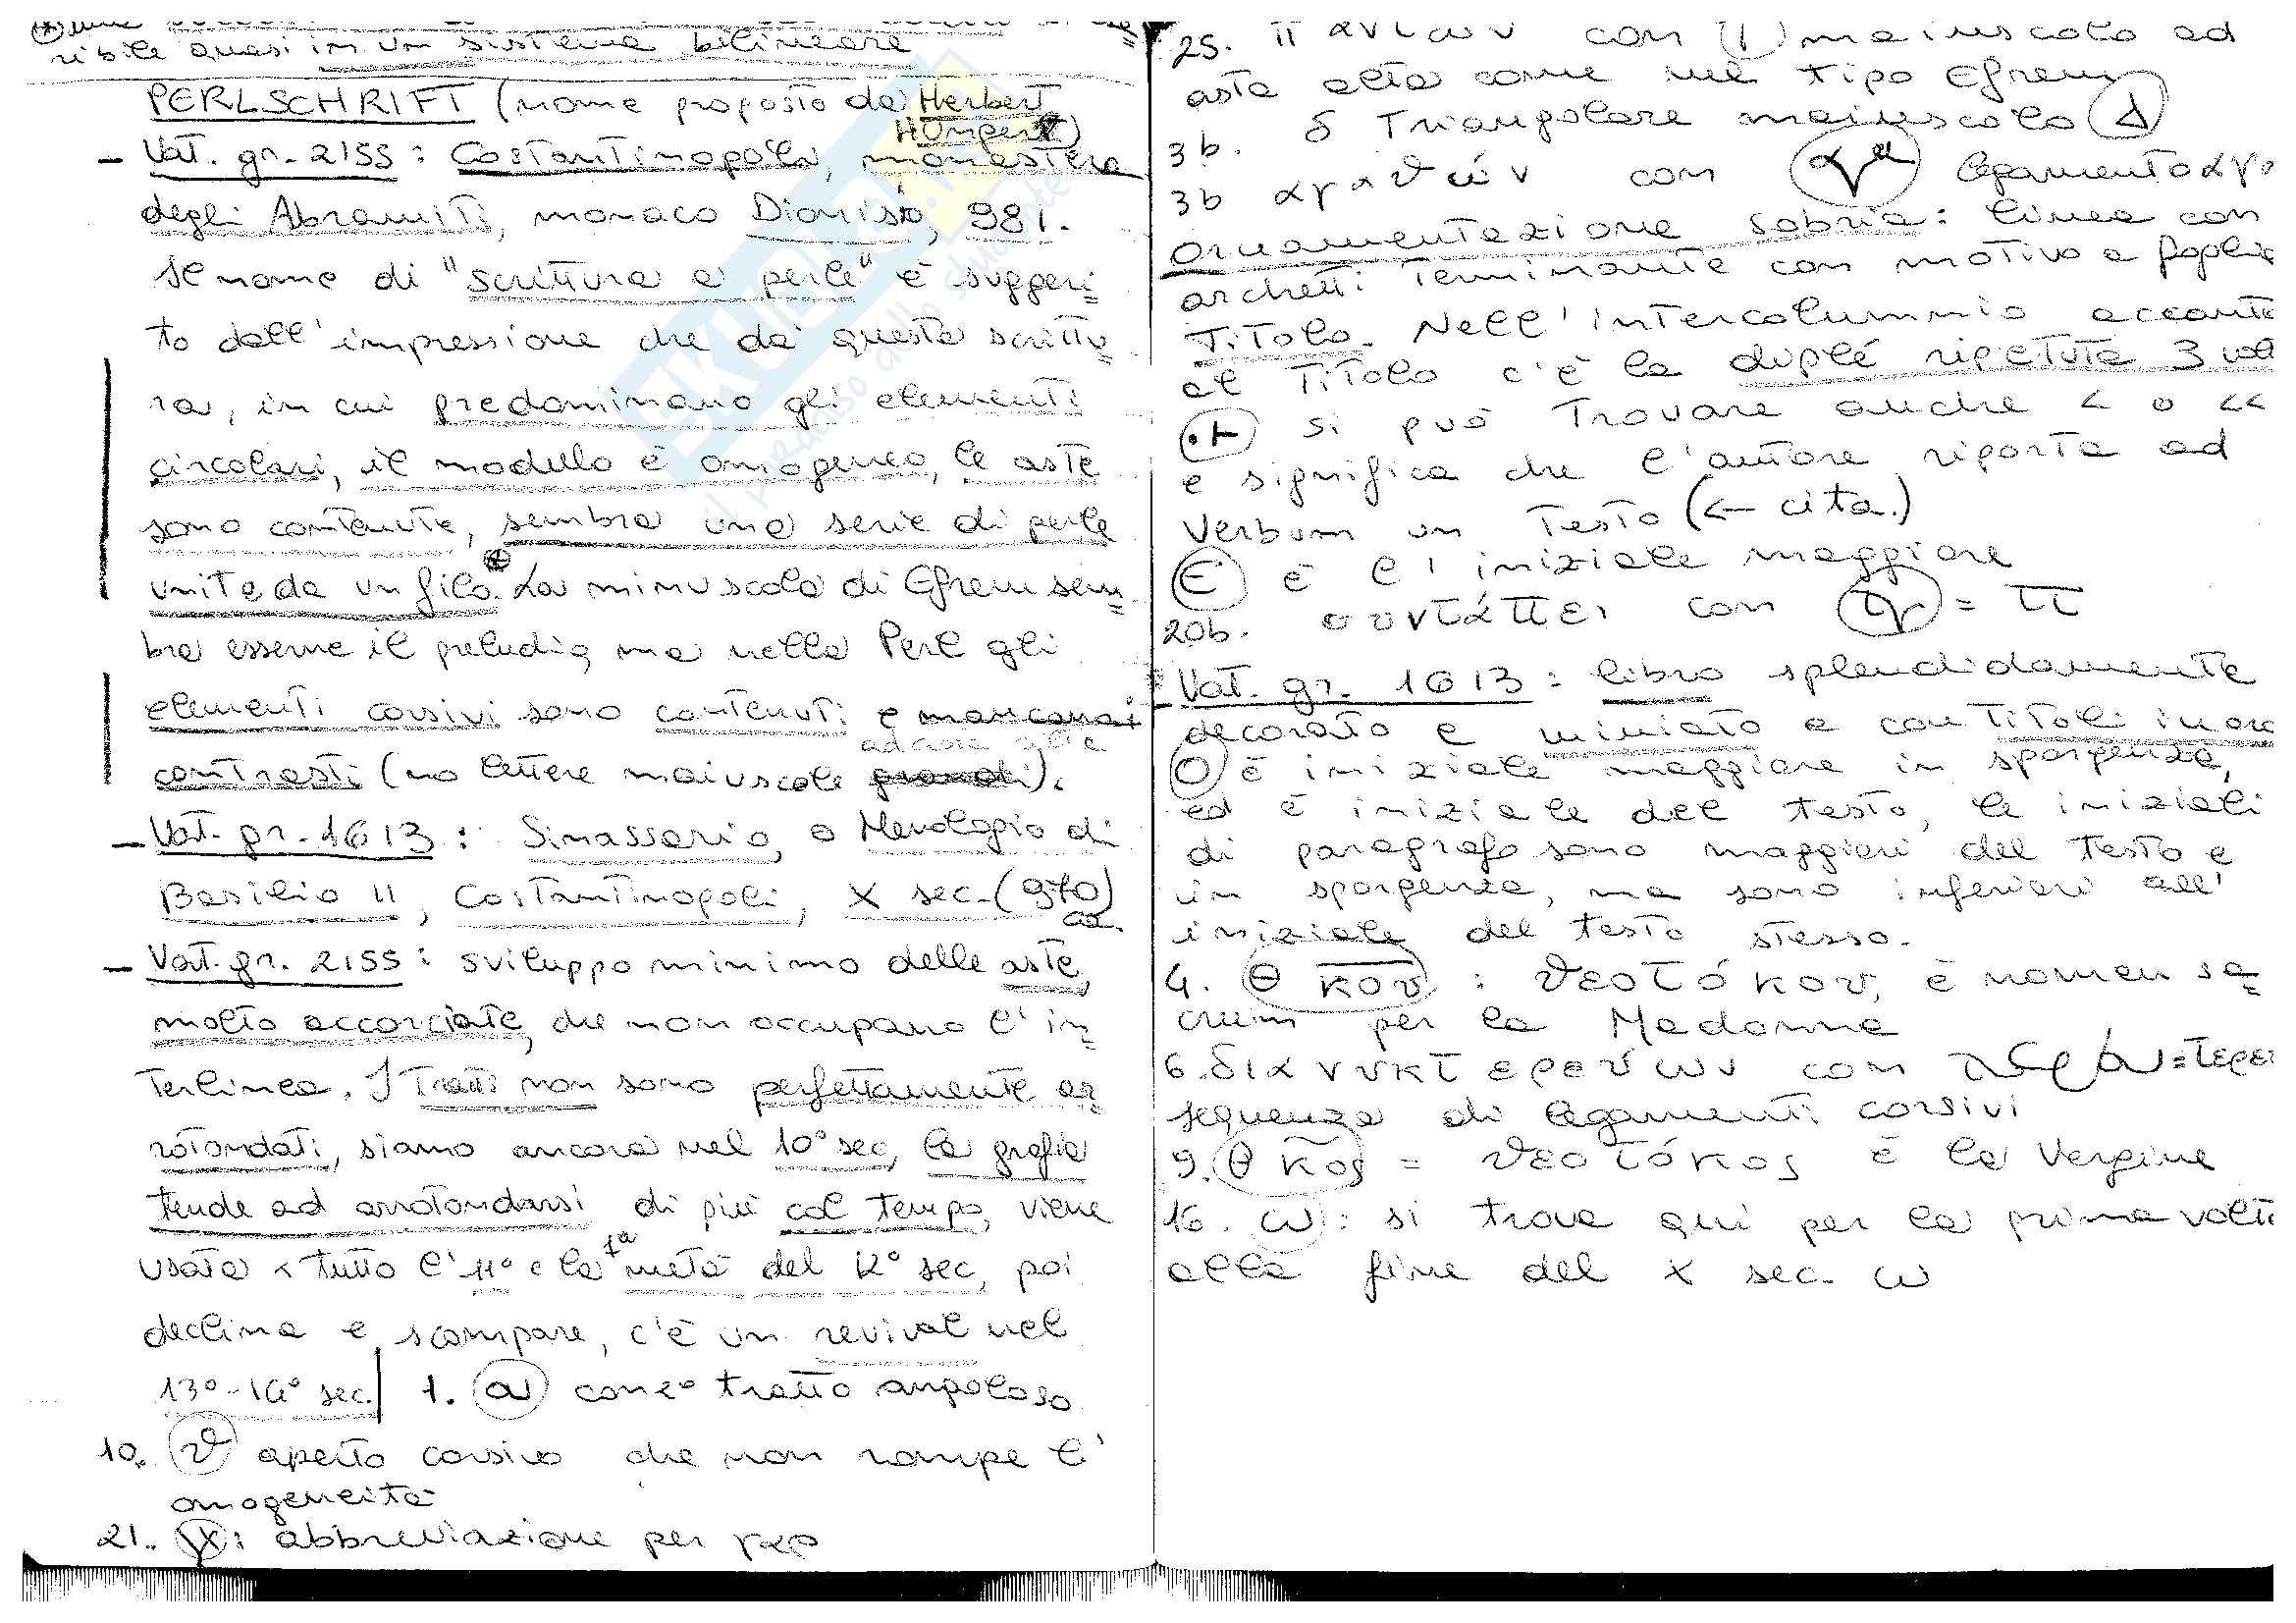 ribile quasi in un sistema bilineare
PERLSCHRIFT (nome proposto da Herbert
Hunger)
- Vat. gr. 2155 : Costantinopoli, monastero
degli Abramiti, monaco Dionisio, 981.
Il nome di "scrittura a perle" è suggeri=
to dall'impressione che dà questa scrittu
ra, in cui predominano gli elementi
circolari, il modulo è omogeneo, le aste
sono contenute, sembra una serie di perle
unite da un filo. La minuscola di Efrem sem=
bra esserne il preludio, ma nella Perl gli
elementi corsivi sono contenuti e mancano i
contrasti (no lettere maiuscole grandi).
- Vat. gr. 1613 : Sinassario, o Menologio di
Basilio II, Costantinopoli, X sec. (970)
ca.
- Vat. gr. 2155 : sviluppo minimo delle aste,
molto accorciate, che non occupano l'in=
terlinea. I tratti non sono perfettamente ar=
rotondati, siamo ancora nel 10° sec, la grafia
tende ad arrotondarsi di più col tempo, viene
usata x tutto l'11° e la 1ª metà del 12° sec, poi
declina e scompare, c'è un revival nel
13°-14° sec. | 1. α con 2° tratto angoloso
10. ϑ aperto corsivo che non rompe l'
omogeneità
21. : abbreviazione per γαρ
25. con maiuscolo ad
asta alta come nel tipo Efrem
3b. δ triangolare maiuscolo Δ
3b αγαϑών con αγα legamento αγ
ornamentazione sobria: linea con
archetti terminante con motivo a foglia
Titolo. Nell'intercolumnio accanto
al titolo c'è la diplé ripetuta 3 vol
si può trovare anche < o <<
e significa che l'autore riporta ad
verbum un testo (← cita.)
Є è l'iniziale maggiore
20b. συντάττει con = ττ
- Vat. gr. 1613 : libro splendidamente
decorato e miniato e con titoli in oro
O è iniziale maggiore in sporgenza,
ed è iniziale del testo, le iniziali
di paragrafo sono maggiori del testo e
in sporgenza, ma sono inferiori all'
iniziale del testo stesso.
4. Θκου : ϑεοτόκου, è nomen sa=
crum per la Madonna
6. διανυκτερεύων con = τερευ
sequenza di legamenti corsivi
9. Θκος = ϑεοτόκος è la Vergine
16. ω : si trova qui per la prima volta
alla fine del X sec. ω